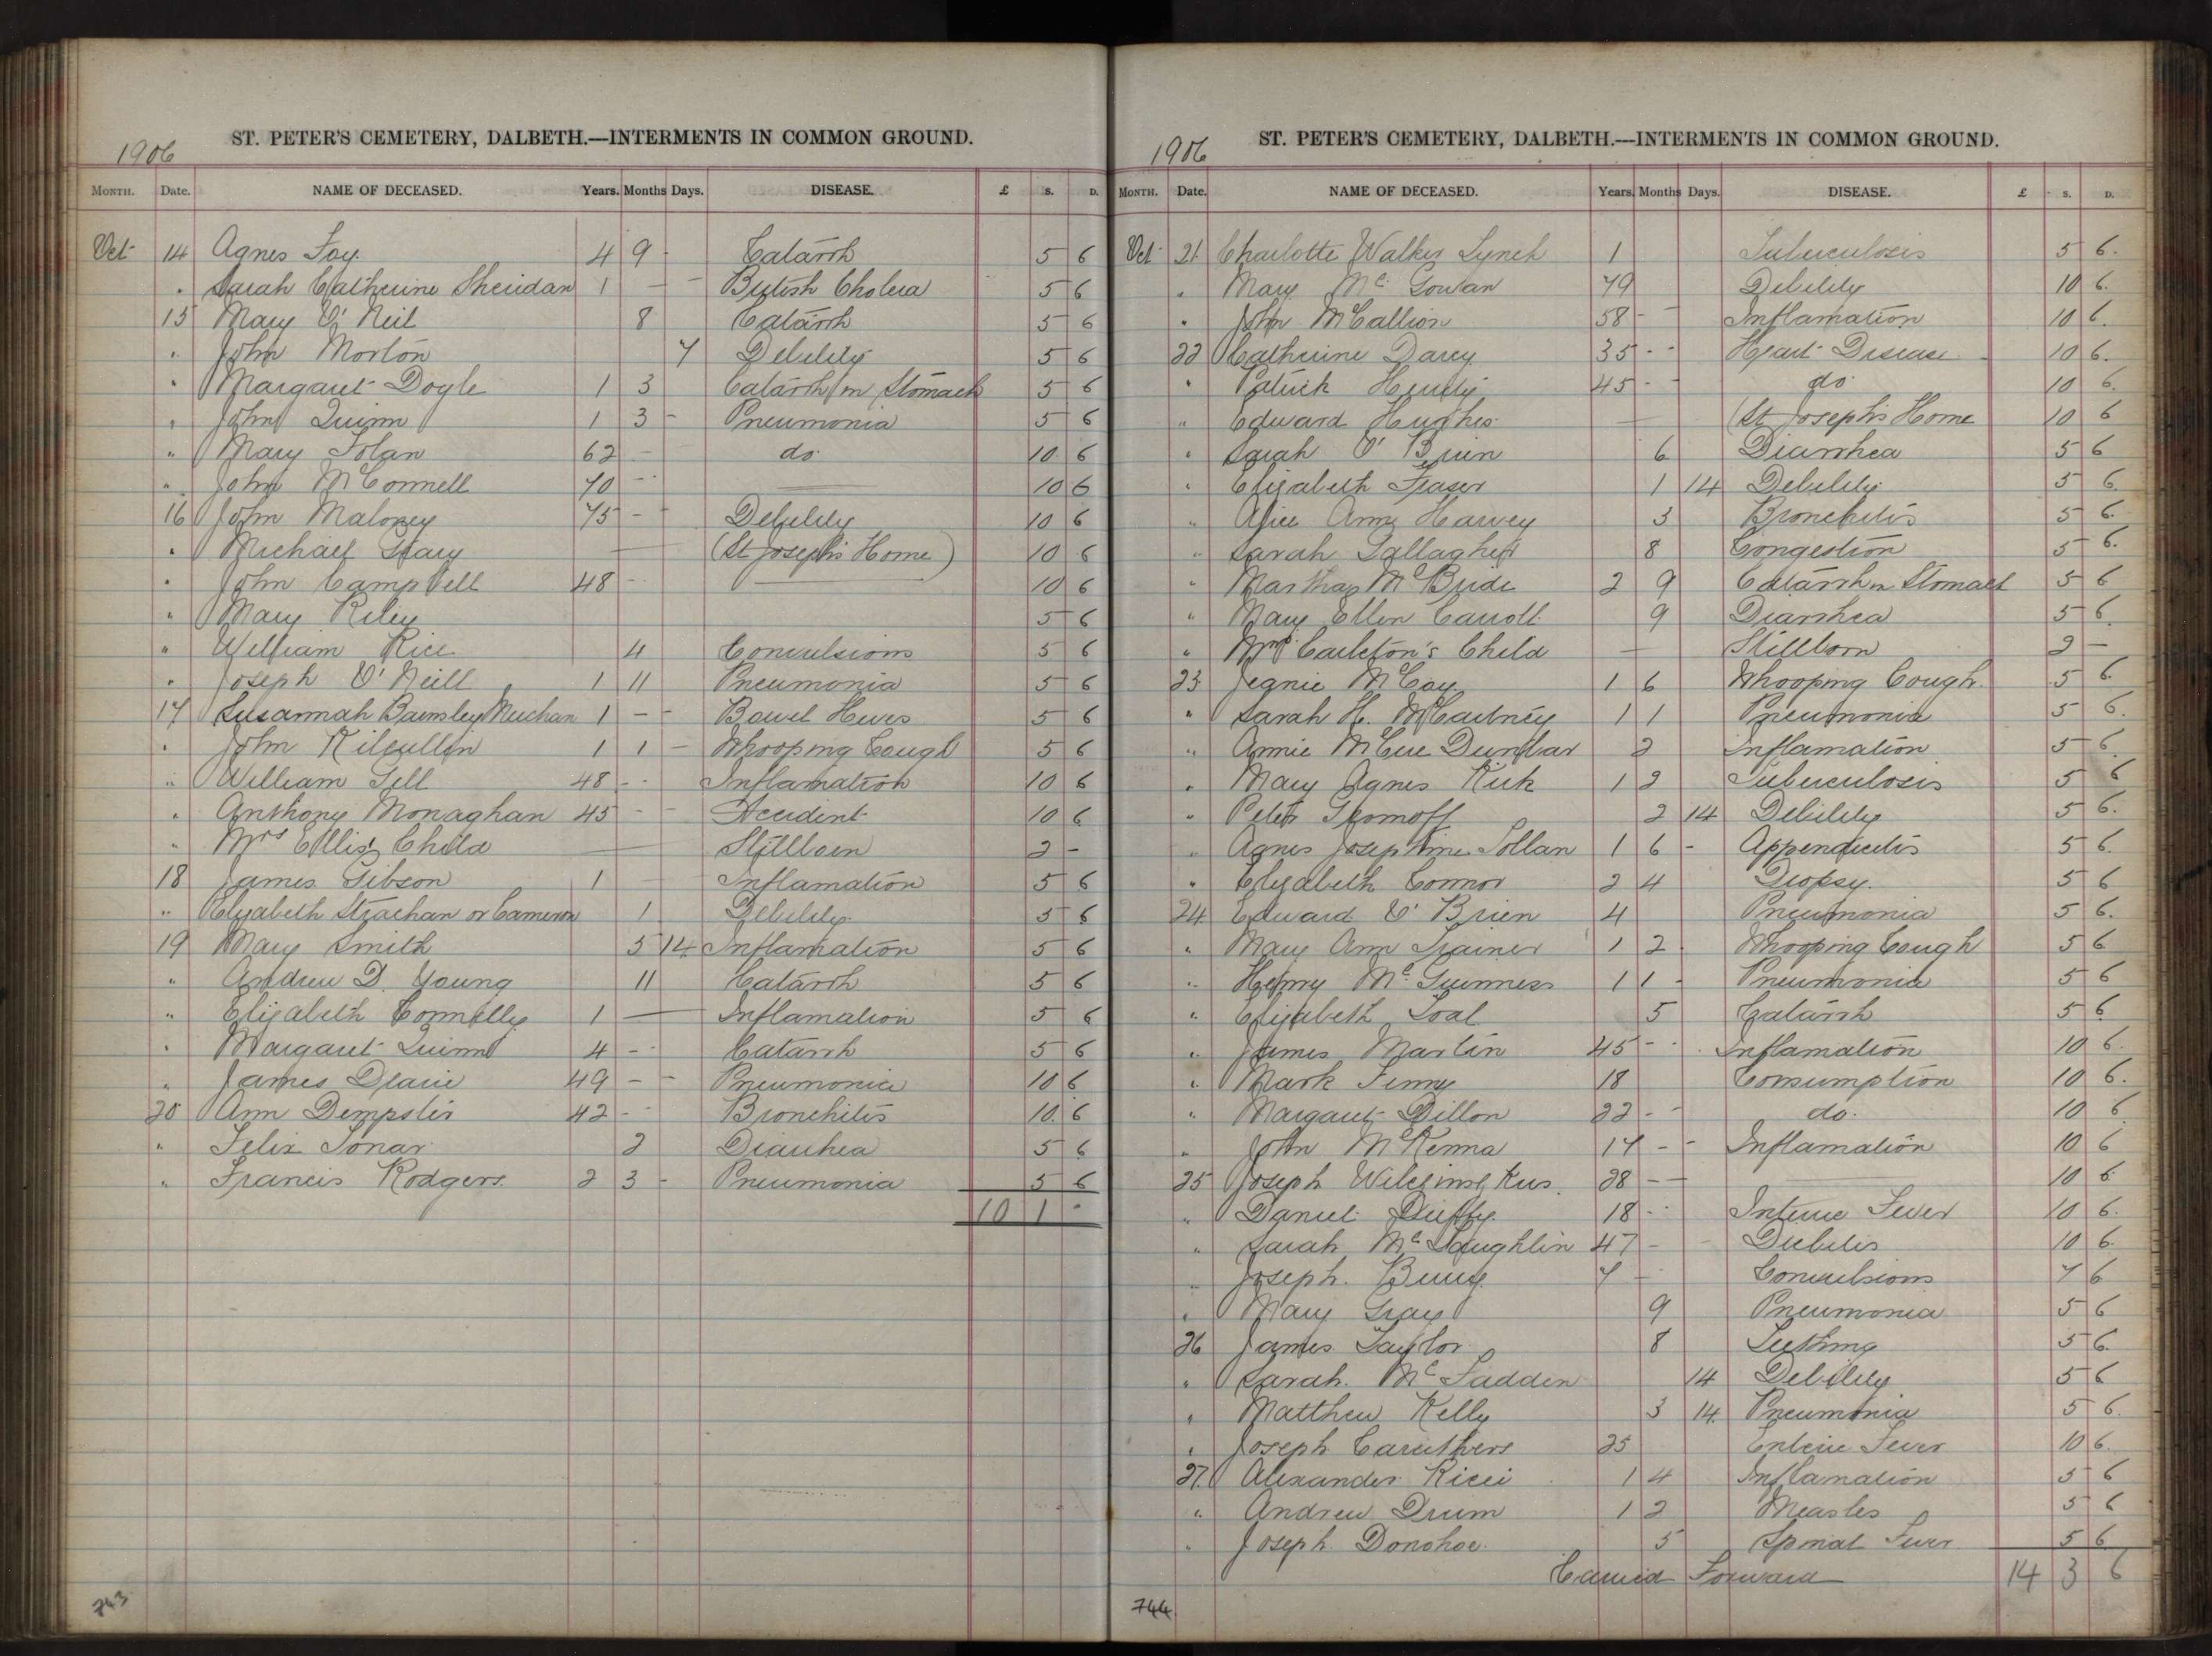 1906
ST. PETER'S CEMETERY, DALBETH.—INTERMENTS IN COMMON GROUND.
MONTH. Date. NAME OF DECEASED. Years. Months Days. DISEASE. £ S. D.
Oct 14 Agnes Foy 4 9 - Catarrh 5 6
" Sarah Catherine Sheridan 1 — - British Cholera 5 6
15 Mary O'Neil 8 Catarrh 5 6
" John Morton 7 Debility 5 6
" Margaret Doyle 1 3 Catarrh in Stomach 5 6
" John Quinn 1 3 - Pneumonia 5 6
" Mary Tolan 62 - do 10 6
" John McConnell 70 - - — 10 6
16 John Maloney 75 - - Debility 10 6
" Michael Geary — (St Joseph's Home) 10 6
" John Campbell 48 - - — 10 6
" Mary Riley 5 6
" William Rice 4 Convulsions 5 6
" Joseph O'Neill 1 11 Pneumonia 5 6
17 Susannah Meechan 1 - - Bowel Hives 5 6
" John Kilcullen 1 1 - Whooping Cough 5 6
" William Gill 48 - - Inflamation 10 6
" Anthony Monaghan 45 - - Accident 10 6
" Mrs Ellis's Child — Stillborn 2 -
18 James Gibson 1 — Inflamation 5 6
" Elizabeth Strachan or Cameron 1 Debility 5 6
19 Mary Smith 5 14 Inflamation 5 6
" Andrew D. Young 11 Catarrh 5 6
" Elizabeth Connelly 1 — Inflamation 5 6
" Margaret Quinn 4 - - Catarrh 5 6
" James 49 - - Pneumonia 10 6
20 Ann Dempster 42 - - Bronchitis 10 6
" Felix Tonar 2 Diarrhea 5 6
" Francis Rodgers 2 3 - Pneumonia 5 6
10 1 -
743
1906
ST. PETER'S CEMETERY, DALBETH.—INTERMENTS IN COMMON GROUND.
MONTH. Date. NAME OF DECEASED. Years. Months Days. DISEASE. £ S. D.
Oct 21 Charlotte Walker Lynch 1 Tuberculosis 5 6
" Mary Mc Gowan 79 Debility 10 6
" John McCallion 58 - - Inflamation 10 6
22 Catherine Darcy 35 - - Heart Disease 10 6
" Patrick 45 - - do 10 6
" Edward Hughes — (St Joseph's Home 10 6
" Sarah O'Brien 6 Diarrhea 5 6
" Elizabeth Fraser 1 14 Debility 5 6
" Alice Ann Harvey 3 Bronchitis 5 6
" Sarah Gallagher 8 Congestion 5 6
" Martha McBride 2 9 Catarrh in Stomach 5 6
" Mary Ellen Carroll 9 Diarrhea 5 6
" Mrs Carleton's Child — Stillborn 2 —
23 Jeanie McCoy 1 6 Whooping Cough 5 6
" Sarah H. McCartney 1 1 Pneumonia 5 6
" Annie McCue Dunbar 2 Inflamation 5 6
" Mary Agnes Kirk 1 2 Tuberculosis 5 6
" Peter 2 14 Debility 5 6
" Agnes Josephine Tollan 1 6 - Appendicitis 5 6
" Elizabeth Connor 2 4 Dropsy 5 6
24 Edward O'Brien 4 Pneumonia 5 6
" Mary Ann Trainer 1 2 Whooping Cough 5 6
" Henry McGuinness 1 1 - Pneumonia 5 6
" Elizabeth 5 Catarrh 5 6
" James Martin 45 - - Inflamation 10 6
" Mark 18 Consumption 10 6
" Margaret Dillon 22 - - do 10 6
" John McKenna 17 - - Inflamation 10 6
25 Joseph 28 - - — 10 6
" Daniel Duffy 18 - - Fever 10 6
" Sarah McLaughlin 47 - 10 6
" Joseph 7 - Convulsions 7 6
" Mary Gray 9 Pneumonia 5 6
26 James Taylor 8 Teething 5 6
" Sarah McFadden 14 Debility 5 6
" Matthew Kelly 3 14 Pneumonia 5 6
" Joseph Caruthers 25 Enteric Fever 10 6
27 Alexander Ricci 1 4 Inflamation 5 6
" Andrew Drum 1 2 Measles 5 6
" Joseph Donohoe 5 Spinal Fever 5 6
Carried Forward 14 3 6
744